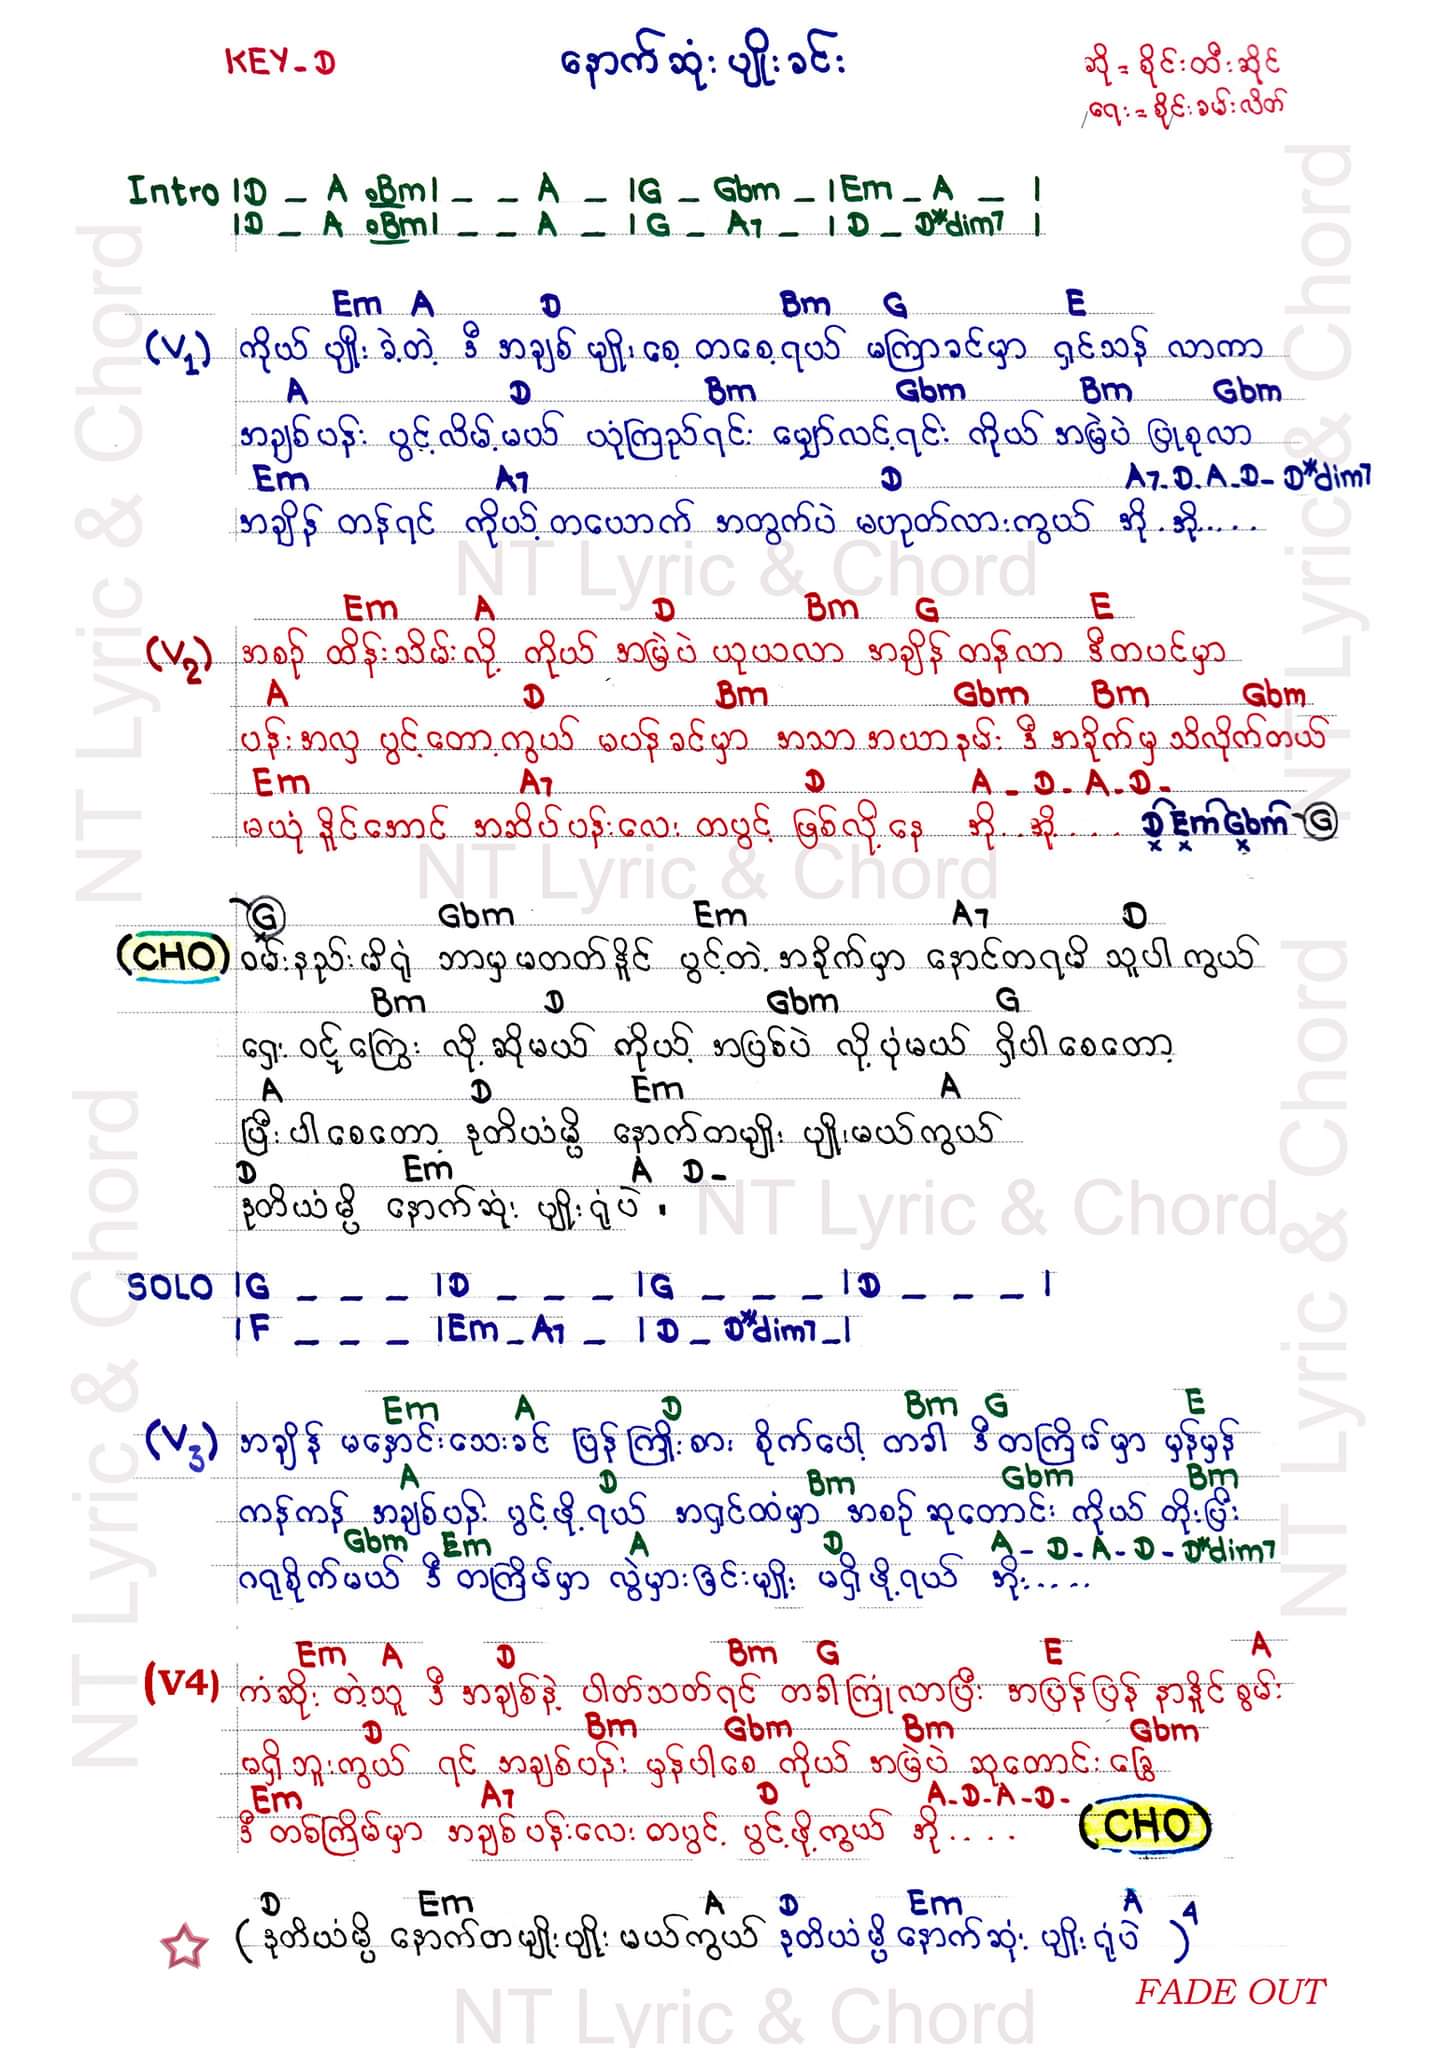 KEY - D
နောက်ဆုံး ပျိုးခင်း
ဆို = စိုင်းထီးဆိုင်
ရေး = စိုင်းခမ်းလိတ်
Intro |D _ A Bm| _ _ A _ |G _ Gbm _ |Em _ A _ |
|D _ A Bm| _ _ A _ |G _ A7 _ |D _ D*dim7 |
Em A D Bm G E
(V1) ကိုယ် ပျိုး ခဲ့တဲ့ ဒီ အချစ် မျိုးစေ့ တစေ့ရယ် မကြာခင်မှာ ရှင်သန် လာကာ
A D Bm Gbm Bm Gbm
အချစ်ပန်း ပွင့်လိမ့်မယ် ယုံကြည်ရင်း မျှော်လင့်ရင်း ကိုယ် အမြဲပဲ ပြုစုလာ
Em A7 D A7-D-A-D- D*dim7
အချိန် တန်ရင် ကိုယ့်တယောက် အတွက်ပဲ မဟုတ်လားကွယ် အို..အို.....
Em A D Bm G E
(V2) အစဉ် ထိန်းသိမ်းလို့ ကိုယ် အမြဲပဲ ယုယလာ အချိန် တန်လာ ဒီတပင်မှာ
A D Bm Gbm Bm Gbm
ပန်းအလှ ပွင့်တော့ကွယ် မပန်ခင်မှာ အသာ အယာနမ်း ဒီ အခိုက်မှ သိလိုက်တယ်
Em A7 D A - D - A - D -
မယုံနိူင်အောင် အဆိပ်ပန်းလေး တပွင့် ဖြစ်လို့နေ အို..အို.... D Em Gbm G
G Gbm Em A7 D
(CHO) ဝမ်းနည်းမိရုံ ဘာမှမတတ်နိူင် ပွင့်တဲ့အခိုက်မှာ နောင်တရမိ သူပါကွယ်
Bm D Gbm G
ရှေးဝဋ်ကြွေး လို့ဆိုမယ် ကိုယ့် အပြစ်ပဲ လို့ပုံမယ် ရှိပါစေတော့
A D Em A
ပြီးပါစေတော့ ဒုတိယံမ္ပိ နောက်တမျိုး ပျိုးမယ်ကွယ်
D Em A D -
ဒုတိယံမ္ပိ နောက်ဆုံး ပျိုးရုံပဲ ။
SOLO |G _ _ _ |D _ _ _ |G _ _ _ |D _ _ _ |
|F _ _ _ |Em _ A7 _ |D _ D*dim7 _|
Em A D Bm G E
(V3) အချိန် မနှောင်းသေးခင် ပြန်ကြိုးစား စိုက်ပေါ့ တခါ ဒီတကြိမ်မှာ မှန်မှန်
A D Bm Gbm Bm
ကန်ကန် အချစ်ပန်း ပွင့်ဖို့ရယ် အရှင်ထံမှာ အစဉ် ဆုတောင်း ကိုယ် တိုးပြီး
Gbm Em A D A - D - A - D - D*dim7
ဂရုစိုက်မယ် ဒီတကြိမ်မှာ လွဲမှားခြင်းမျိုး မရှိဖို့ရယ် အိုး.....
Em A D Bm G E A
(V4) ကံဆိုး တဲ့သူ ဒီ အချစ်နဲ့ ပါတ်သတ်ရင် တခါကြုံလာပြီး အပြန်ပြန် နာနိူင်စွမ်း
D Bm Gbm Bm Gbm
မရှိဘူးကွယ် ရင် အချစ်ပန်း မှန်ပါစေ ကိုယ် အမြဲပဲ ဆုတောင်းခြွေ
Em A7 D A-D-A-D-
ဒီ တစ်ကြိမ်မှာ အချစ်ပန်းလေးတပွင့် ပွင့်ဖို့ကွယ် အို.... (CHO)
D Em A D Em A
(ဒုတိယံမ္ပိ နောက်တမျိုးပျိုး မယ်ကွယ် ဒုတိယံမ္ပိ နောက်ဆုံး ပျိုးရုံပဲ )4
FADE OUT
NT Lyric & Chord
NT Lyric & Chord
NT Lyric & Chord
NT Lyric & Chord
NT Lyric & Chord
NT Lyric & Chord
NT Lyric & Chord
NT Lyric & Chord